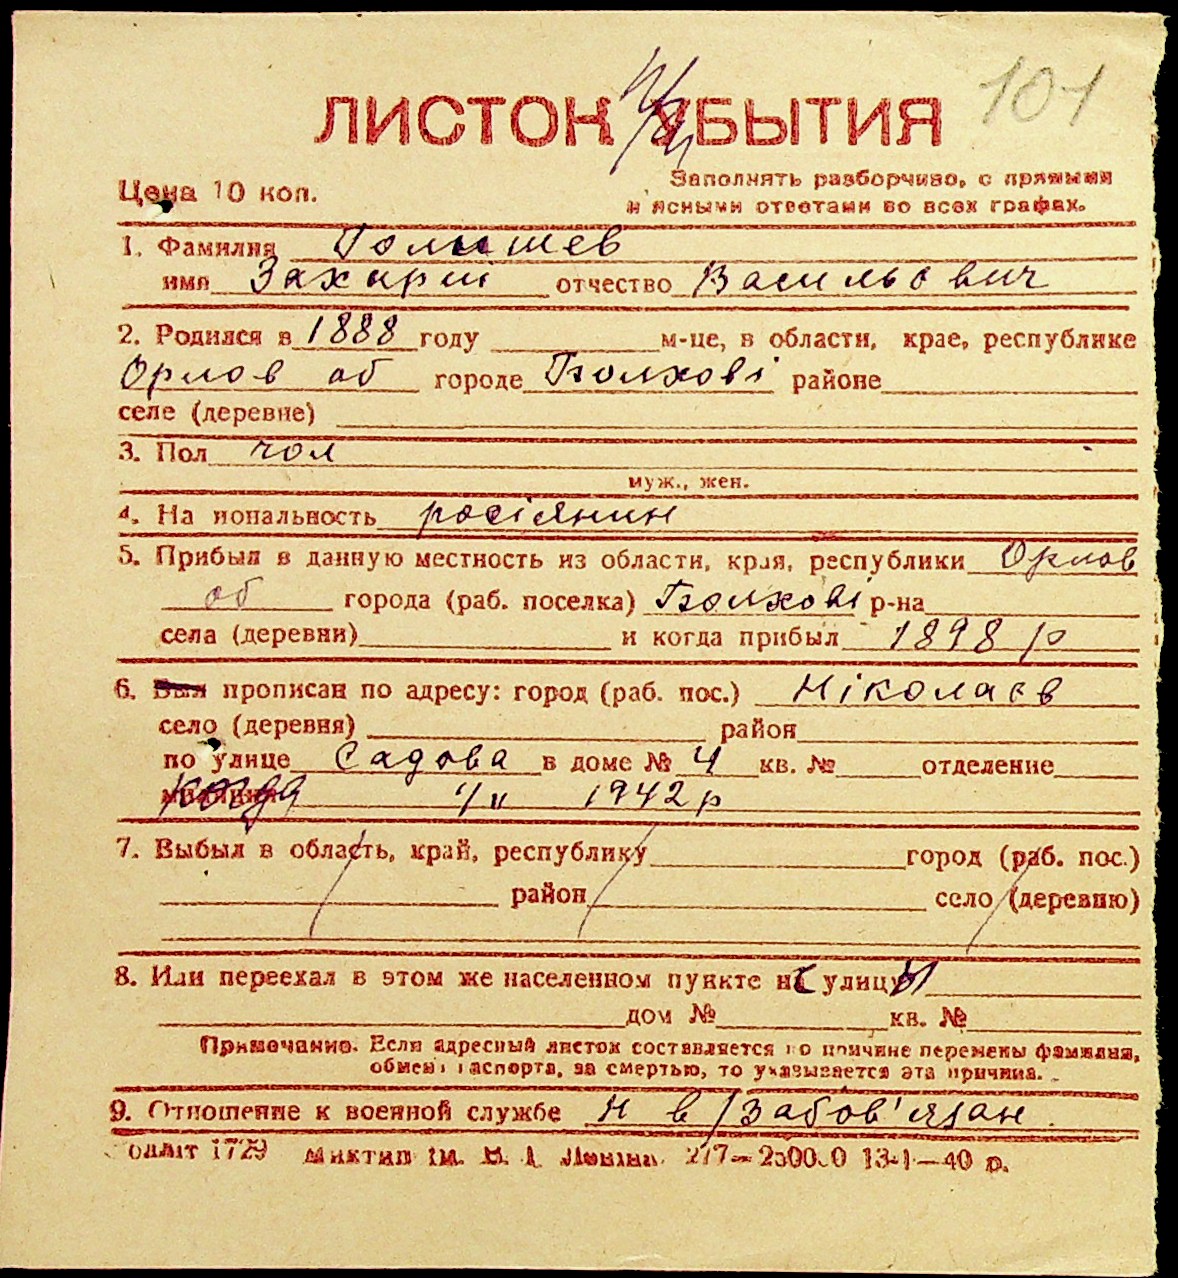 101
ЛИСТОК УБЫТИЯ
Цена 10 коп.
Заполнять разборчиво, с прямыми
и ясными ответами во всех графах.
1. Фамилия Голишев
имя Захарій отчество Васильович
2. Родился в 1888 году м-це, в области, крае, республике
Орлов об городе Болхові районе
селе (деревне)
3. Пол чол
муж., жен.
4. На иональность росіянин
5. Прибыл в данную местность из области, края, республики Орлов
об города (раб. поселка) Болхові р-на
села (деревни) и когда прибыл 1898 р
6. Был прописан по адресу: город (раб. пос.) Ніколаєв
село (деревня) район
по улице Садова в доме № 4 кв. № отделение
когда 1942 р
7. Выбыл в область, край, республику город (раб. пос.)
район село (деревню)
8. Или переехал в этом же населенном пункте с улицы
дом № кв. №
Примечание. Если адресный листок составляется по причине перемены фамилия,
обмен паспорта, за смертью, то указывается эта причина.
9. Отношение к военной службе н в/забов'язан
1729 277—25000 13-1—40 р.